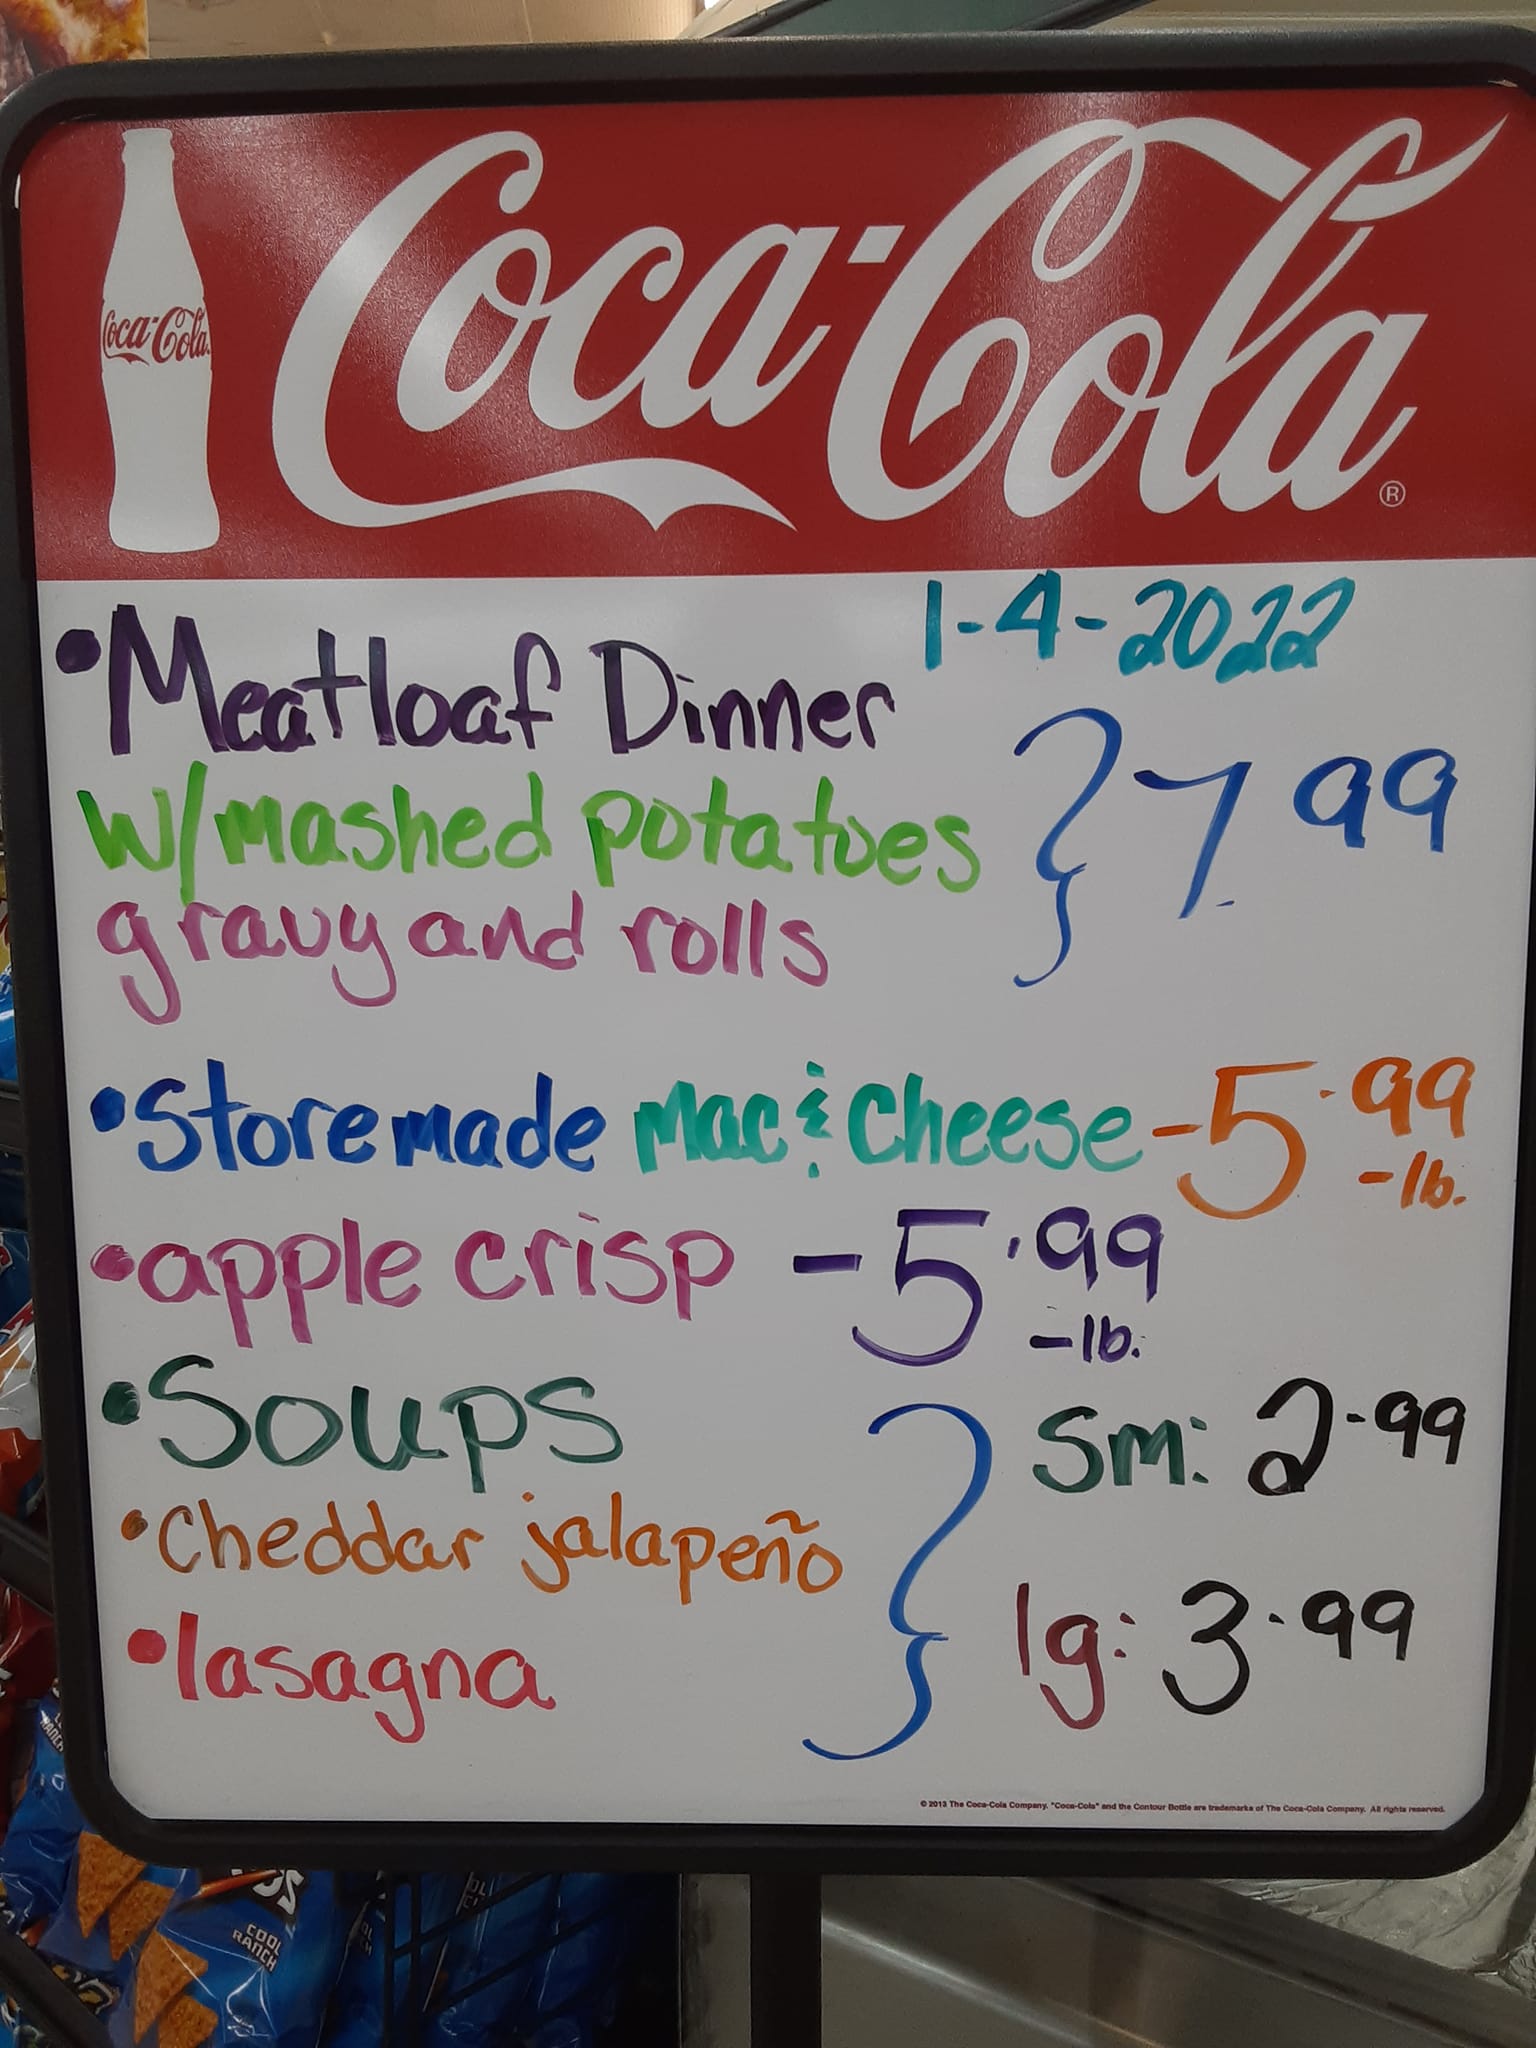 Coca-Cola
Coca-Cola®
1-4-2022
•Meatloaf Dinner
w/mashed potatoes } 7.99
gravy and rolls
•Storemade Mac & Cheese -5.99
-lb.
•apple crisp -5.99
-lb.
•Soups
Sm: 2.99
•Cheddar jalapeño
lg: 3.99
•lasagna
© 2013 The Coca-Cola Company. "Coca-Cola" and the Contour Bottle are trademarks of The Coca-Cola Company. All rights reserved.
COOL
RANCH